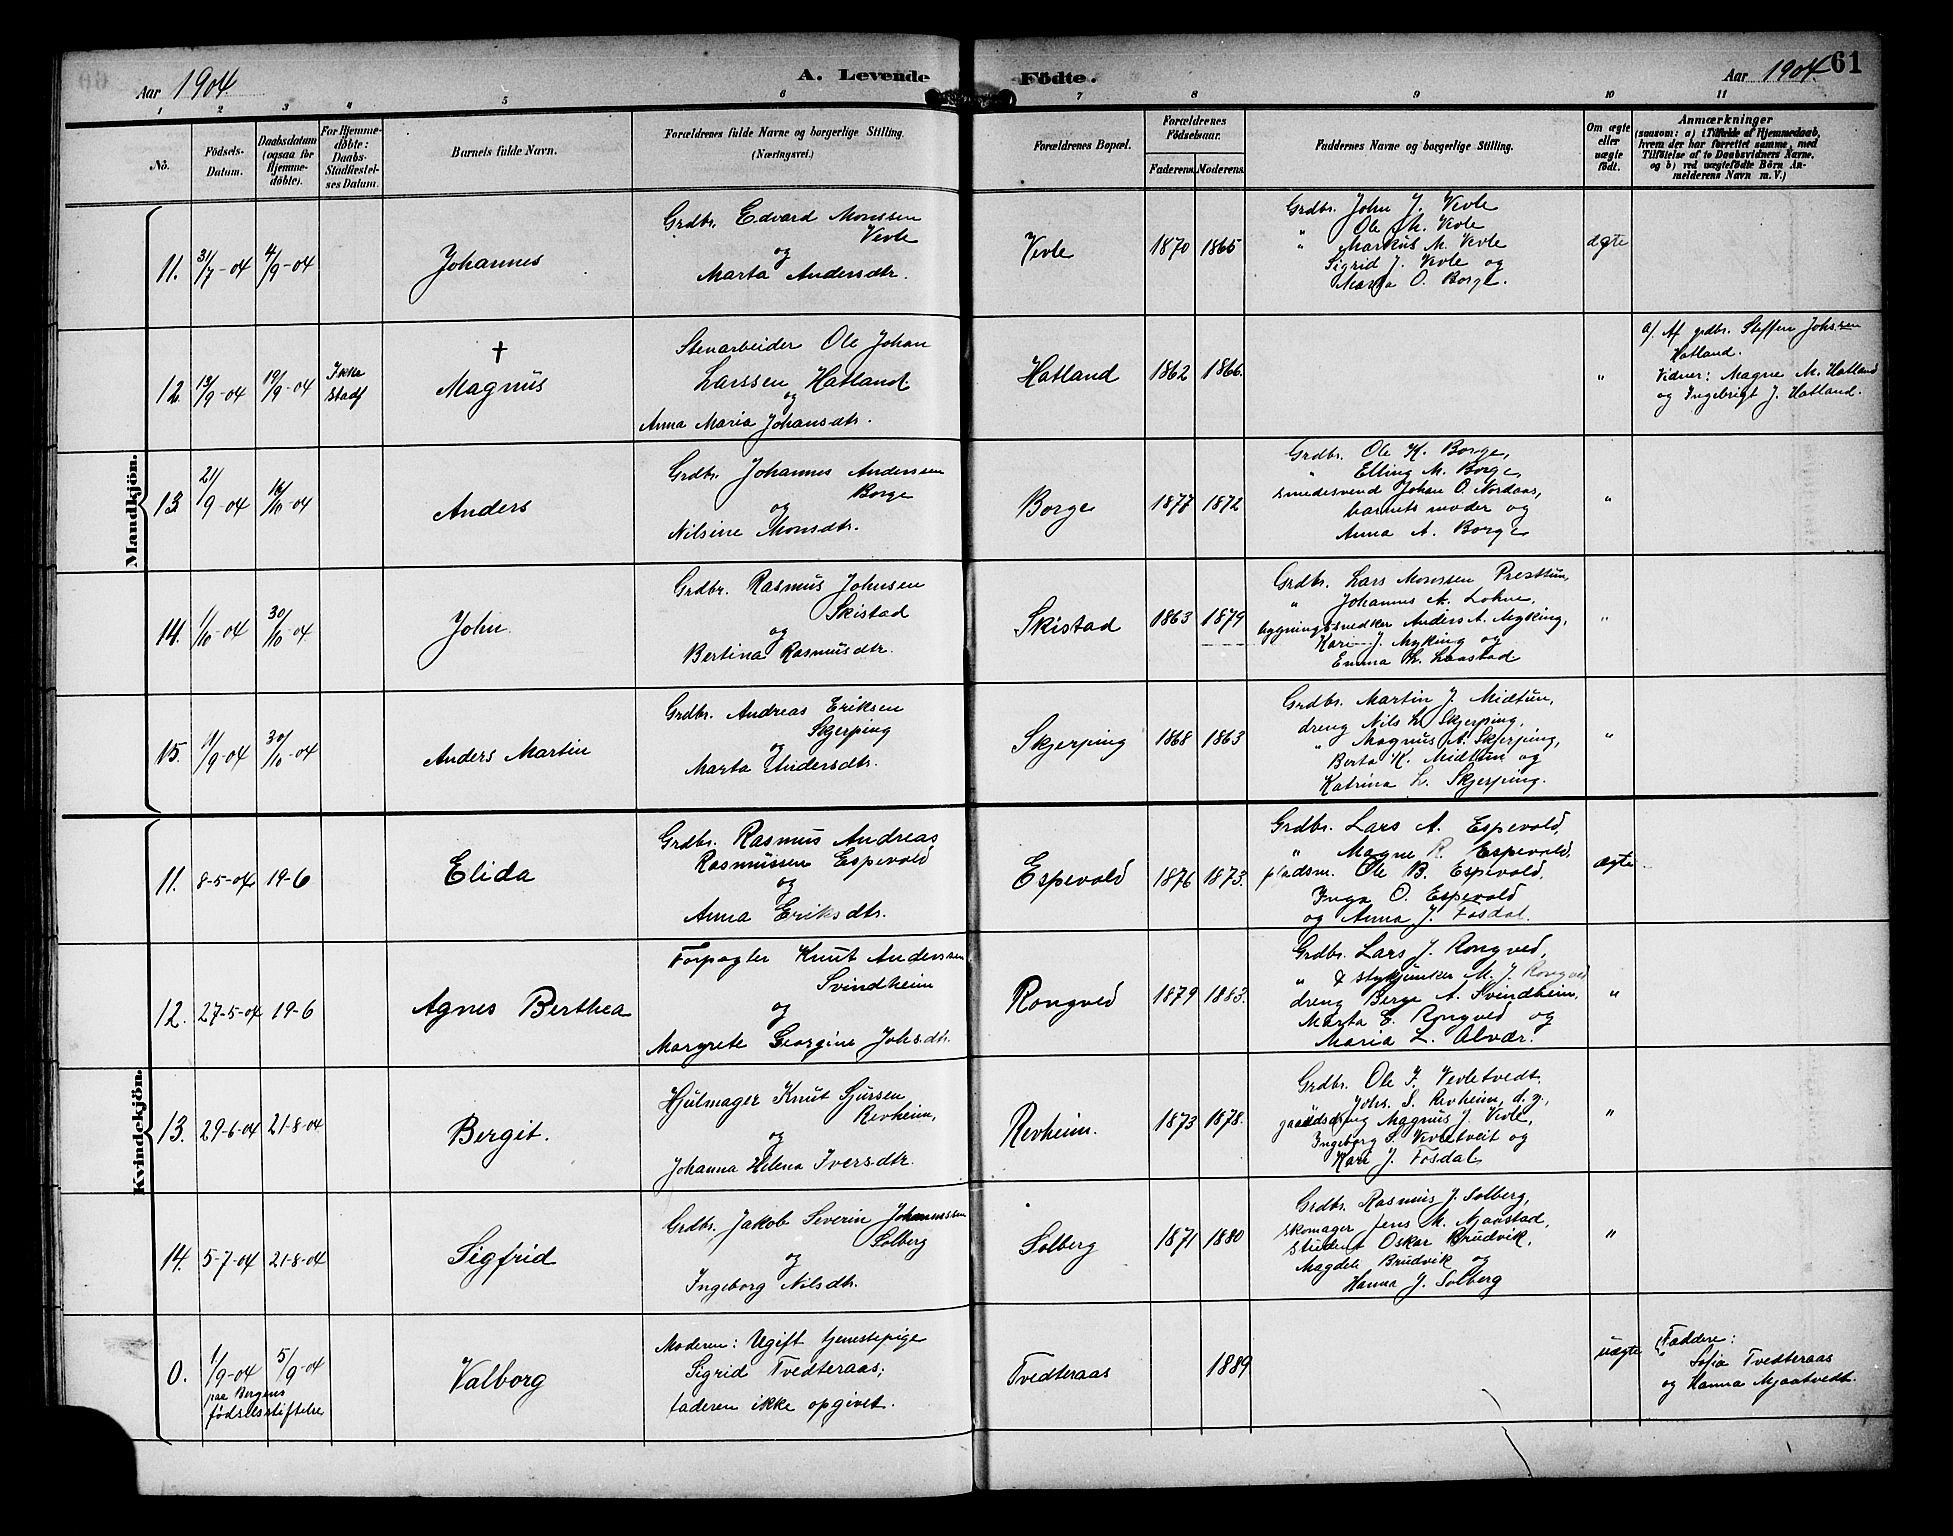 Aar 1904
A. Levende Födte.
Aar 1904. 61
1 2 3 4 5 6 7 8 9 10 11
No.
Födsels-Datum.
Daabsdatum (ogsaa for Hjemmedöbte).
For Hjemmedöbte: Daabs-Stadfæstelses Datum.
Barnets fulde Navn.
Forældrenes fulde Navne og borgerlige Stilling. (Næringsvei.)
Forældrenes Bopæl.
Forældrenes Födselsaar.
Faderens. Moderens.
Faddernes Navne og borgerlige Stilling.
Om ægte eller uægte födt.
Anmærkninger
(saasom: a) i Tilfælde af Hjemmedaab, hvem der har forrettet samme, med Tilföielse af to Daabsvidners Navne, og b) ved uægtefödte Börn Anmelderens Navn m. V.)
Mandkjön.
11. 31/7-04 4/9-04 Johannes
Grdbr. Edvard Monssen
Vevle
og
Marta Andersdtr.
Vevle 1870 1865
Grdbr. John J. Vevle
" Ole M. Vevle
" Markus M. Vevle
Sigrid J. Vevle og
Marta O. Borge.
ægte
12. 13/9-04 19/9-04 Ikke stadf
†
Magnus
Stenarbeider Ole Johan
Larssen Hatland
og
Anna Maria Johansdtr.
Hatland 1862 1866.
"
a). Af grdbr. Steffen Johssen
Hatland.
Vidner: Magne M. Hatland
og Ingebrigt J. Hatland.
13. 21/9-04 16/10-04 Anders
Grdbr. Johannes Anderssen
Borge
og
Nilsine Monsdtr.
Borge 1877 1872
Grdbr. Ole K. Borge,
" Elling M. Borge,
smedesvend Johan O. Nordaas,
barnets moder og
Anna A. Borge
"
14. 1/10-04 30/10-04 John.
Grdbr. Rasmus Johnsen
Skistad
og
Bertina Rasmusdtr.
Skistad 1863 1879
Grdbr. Lars Monssen Presttun,
" Johannes A. Lohne,
bygningssnedker Anders A. Myking,
Kari J. Myking og
Emma L. Laastad
"
15. 11/9-04 30/10-04 Anders Martin
Grdbr. Andreas Eriksen
Skjerping
og
Marta Andersdtr.
Skjerping 1868 1863
Grdbr. Martin J. Midtun,
dreng Nils L. Skjerping,
" Magnus A. Skjerping,
Berta K. Midtun og
Katrina L. Skjerping.
"
Kvindekjön.
11. 8-5-04 19-6 Elida
Grdbr. Rasmus Andreas
Rasmussen Espevold
og
Anna Eriksdtr.
Espevold 1876 1873.
Grdbr. Lars A. Espevold,
" Magne R. Espevold,
pladsm. Ole B. Espevold,
Inga O. Espevold
og Anna J. Fosdal.
ægte
12. 27-5-04 19-6 Agnes Berthea
Forpagter Knut Anderssen
Svindheim
og
Margrete Georgine Johsdtr.
Rongved 1879 1883.
Grdbr. Lars J. Rongved,
" & stykjunker M. J. Rongved
dreng Berge A. Svindheim,
Marta E. Rongved og
Maria L. Alvær.
"
13. 29-6-04 21-8-04 Bergit.
Hjulmager Knut Sjursen
Revheim,
og
Johanna Helena Iversdtr.
Revheim. 1873 1878.
Grdbr. Ole I. Vevletvedt
Johs. S. Revheim, d.y.,
gaardsdreng Magnus J. Vevle,
Ingeborg S. Vevletveit og
Kari J. Fosdal
"
14. 5-7-04 21-8-04 Sigfrid
Grdbr. Jakob Severin Johannessen
Solberg
og
Ingeborg Nilsdtr.
Solberg 1871 1880
Grdbr. Rasmus J. Solberg,
skomager Jens M. Mjaastad,
student Oskar Brudvik,
Magdele Brudvik og
Hanna J. Solberg
"
0. 1/9-04 5/9-04
paa Bergens
fødselsstiftelse
Valborg
Moderen: Ugift tjenestepige
Sigrid Tvedteraas;
faderen ikke opgivet.
Tvedteraas 1889
uægte
Faddere:
Sofia Tvedteraas
og Hanna Mjaatvedt.